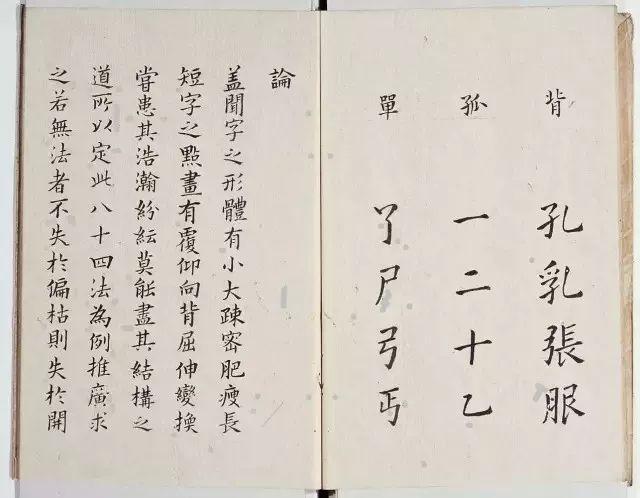 背 孔乳張服
孤 一二十乙
單 丫尸弓丐
論
盖聞字之形體有小大疎密肥瘦長
短字之點畫有覆仰向背屈伸變換
甞患其浩瀚紛紜莫能盡其結構之
道所以定此八十四法為例推廣求
之若無法者不失於偏枯則失於開